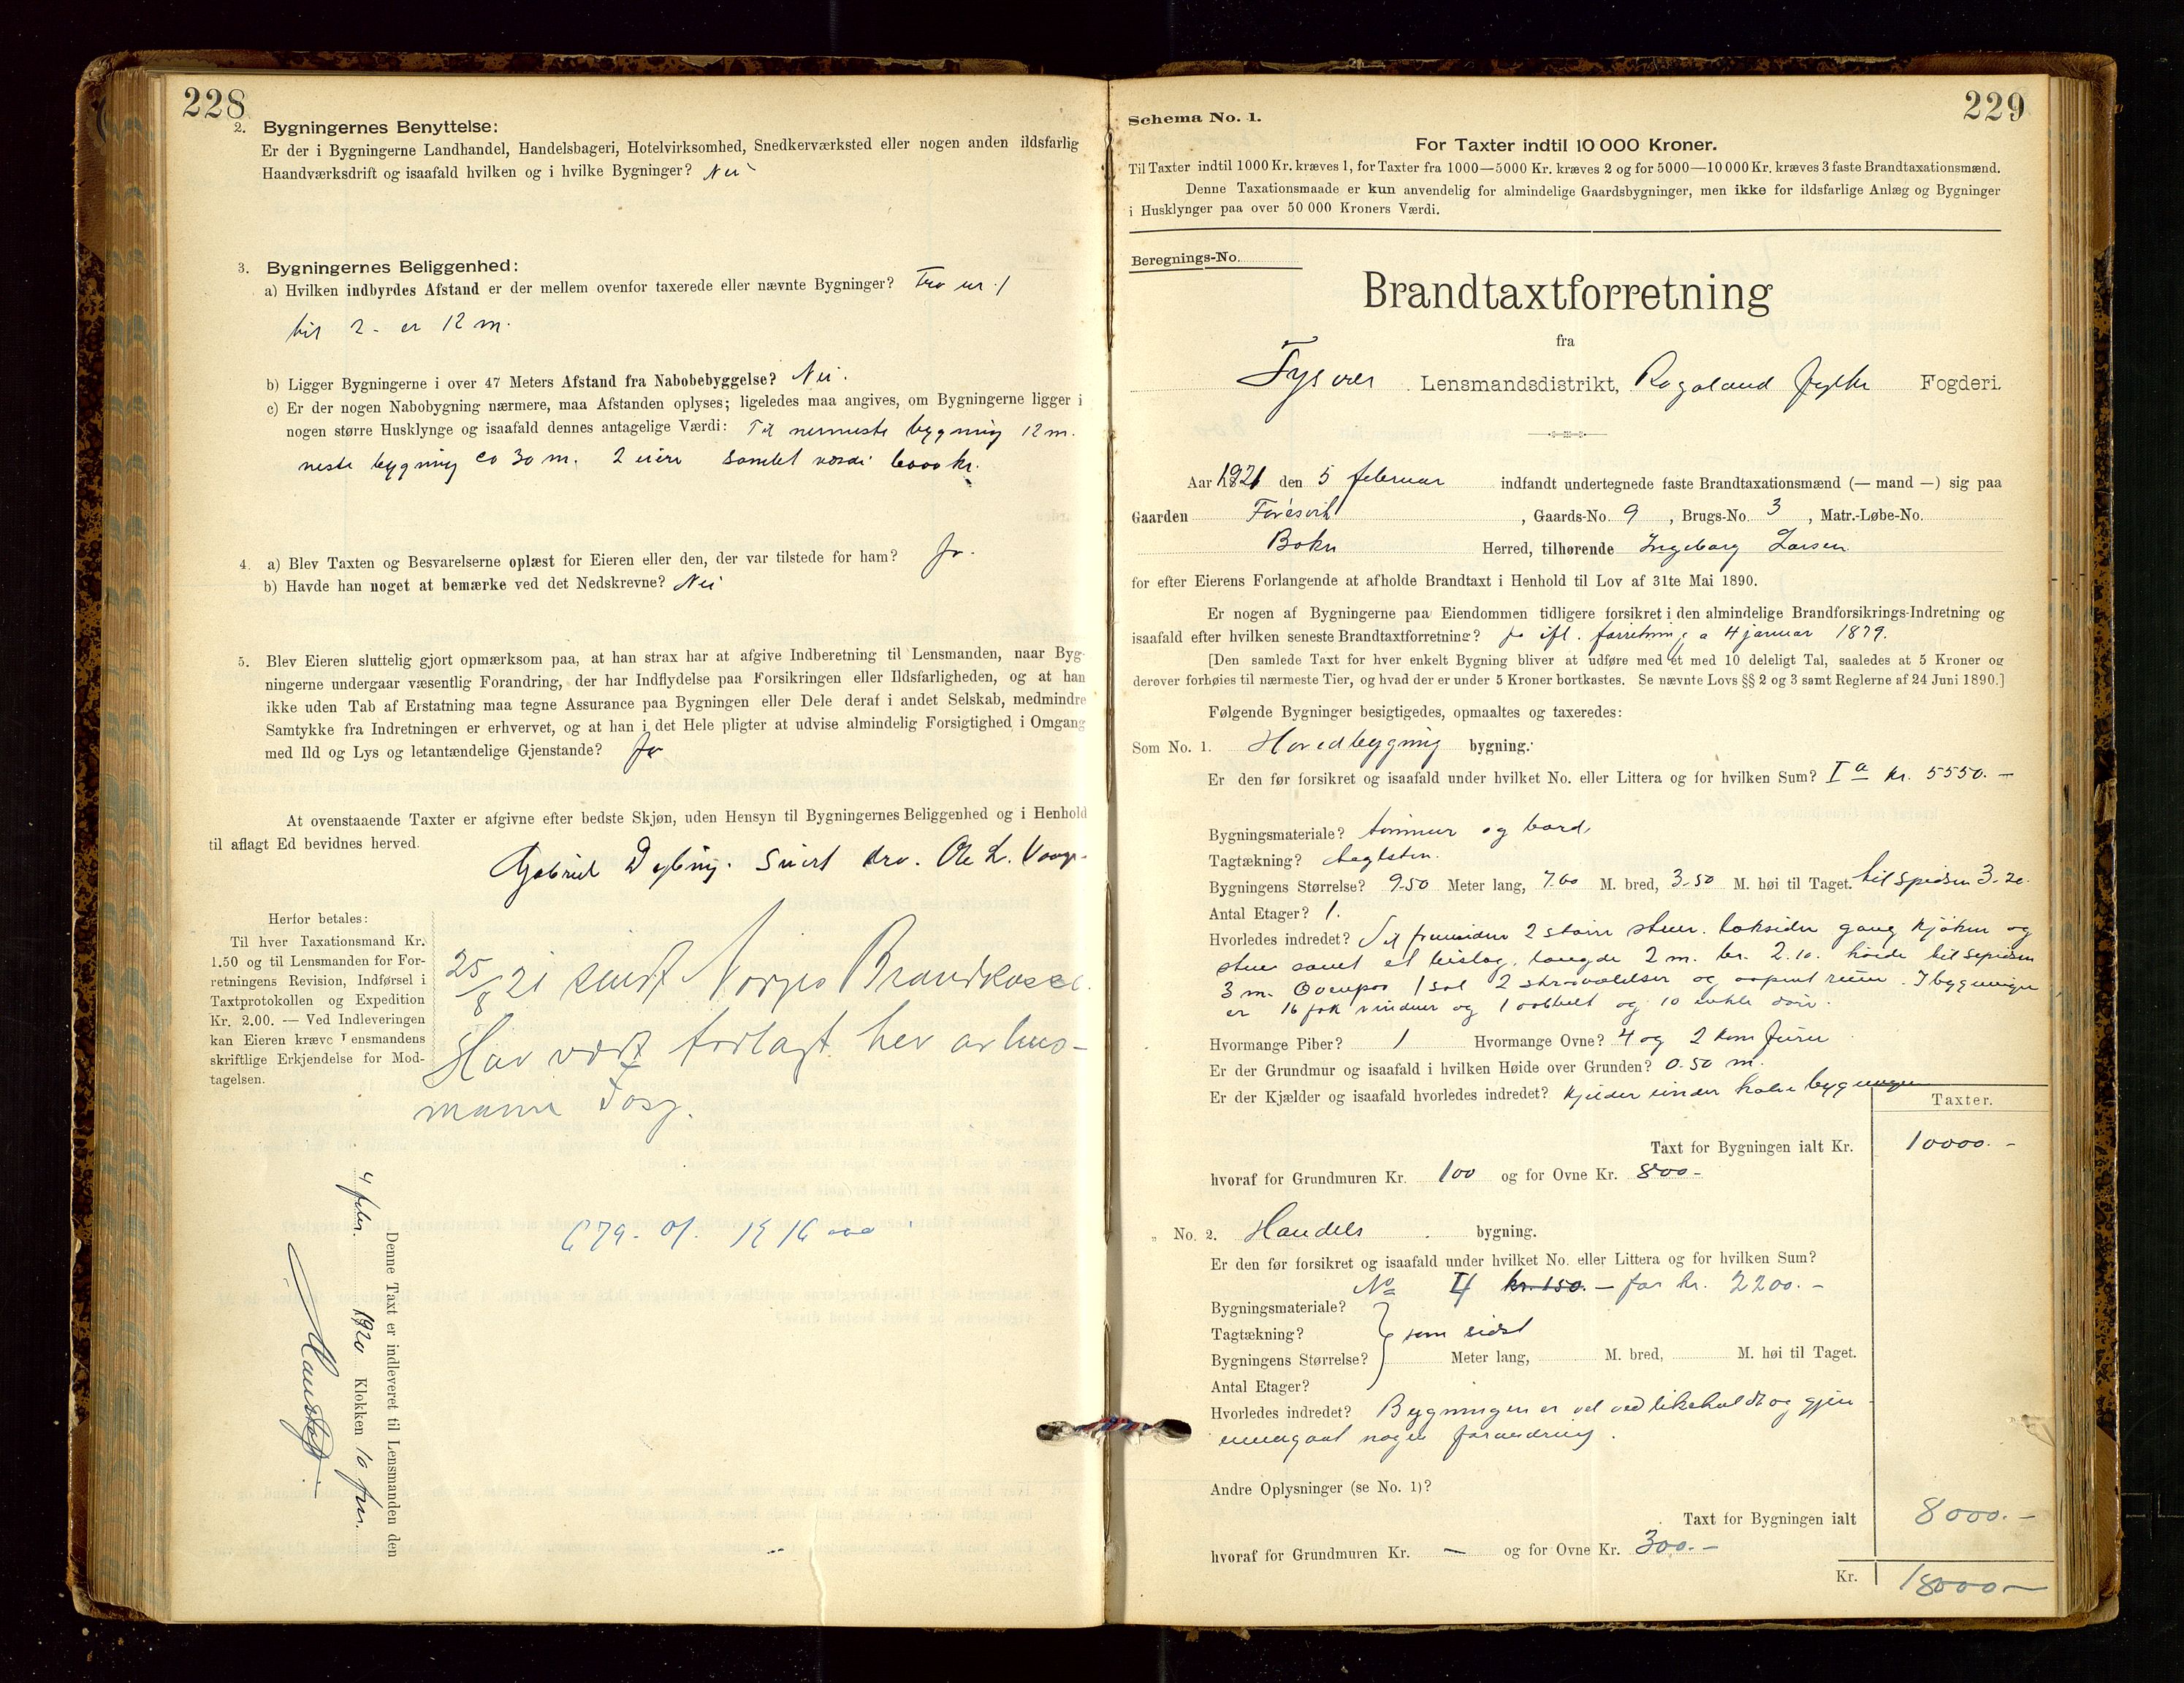 228
2. Bygningernes Benyttelse:
Er der i Bygningerne Landhandel, Handelsbageri, Hotelvirksomhed, Snedkerværksted eller nogen anden ildsfarlig
Haandværksdrift og isaafald hvilken og i hvilke Bygninger? Nei
3. Bygningernes Beliggenhed:
a) Hvilken indbyrdes Afstand er der mellem ovenfor taxerede eller nævnte Bygninger? Fra nr. 1
til 2 - er 12 m.
b) Ligger Bygningerne i over 47 Meters Afstand fra Nabobebyggelse? Nei.
c) Er der nogen Nabobygning nærmere, maa Afstanden oplyses; ligeledes maa angives, om Bygningerne ligger i
nogen større Husklynge og isaafald dennes antagelige Værdi: Til nermeste bygning 12 m.
neste bygning ca 30 m. 2 eiere samlet værdi 6000 kr.
4. a) Blev Taxten og Besvarelserne oplæst for Eieren eller den, der var tilstede for ham? Ja.
b) Havde han noget at bemærke ved det Nedskrevne? Nei
5. Blev Eieren sluttelig gjort opmærksom paa, at han strax har at afgive Indberetning til Lensmanden, naar Byg-
ningerne undergaar væsentlig Forandring, der har Indflydelse paa Forsikringen eller Ildsfarligheden, og at han
ikke uden Tab af Erstatning maa tegne Assurance paa Bygningen eller Dele deraf i andet Selskab, medmindre
Samtykke fra Indretningen er erhvervet, og at han i det Hele pligter at udvise almindelig Forsigtighed i Omgang
med Ild og Lys og letantændelige Gjenstande? Ja
At ovenstaaende Taxter er afgivne efter bedste Skjøn, uden Hensyn til Bygningernes Beliggenhed og i Henhold
til aflagt Ed bevidnes herved.
Gabriel Ole L.
Herfor betales:
Til hver Taxationsmand Kr.
1.50 og til Lensmanden for For-
retningens Revision, Indførsel i
Taxtprotokollen og Expedition
Kr. 2.00. — Ved Indleveringen
kan Eieren kræve Lensmandens
skriftlige Erkjendelse for Mod-
tagelsen.
25/8 21 sendt Norges Brandkasse.
Har vært forlagt her av lens-
mann
Denne Taxt er indleveret til Lensmanden den
4 febr. 1920 Klokken 10 fm.
229
Schema No. 1.
For Taxter indtil 10 000 Kroner.
Til Taxter indtil 1000 Kr. kræves 1, for Taxter fra 1000—5000 Kr. kræves 2 og for 5000—10 000 Kr. kræves 3 faste Brandtaxationsmænd.
Denne Taxationsmaade er kun anvendelig for almindelige Gaardsbygninger, men ikke for ildsfarlige Anlæg og Bygninger
i Husklynger paa over 50 000 Kroners Værdi.
Beregnings-No.
Brandtaxtforretning
fra
Tysvær Lensmandsdistrikt, Rogaland fylke Fogderi.
Aar 1921 den 5 februar indfandt undertegnede faste Brandtaxationsmænd (— mand —) sig paa
Gaarden Føresvik, Gaards-No. 9, Brugs-No. 3, Matr.-Løbe-No.
Bokn Herred, tilhørende Ingeborg Larsen
for efter Eierens Forlangende at afholde Brandtaxt i Henhold til Lov af 31te Mai 1890.
Er nogen af Bygningerne paa Eiendommen tidligere forsikret i den almindelige Brandforsikrings-Indretning og
isaafald efter hvilken seneste Brandtaxtforretning? Ja ifl. forretning a 4 januar 1879.
[Den samlede Taxt for hver enkelt Bygning bliver at udføre med et med 10 deleligt Tal, saaledes at 5 Kroner og
derover forhøies til nærmeste Tier, og hvad der er under 5 Kroner bortkastes. Se nævnte Lovs §§ 2 og 3 samt Reglerne af 24 Juni 1890.]
Følgende Bygninger besigtigedes, opmaaltes og taxeredes:
Som No. 1. Hovedbygning bygning.
Er den før forsikret og isaafald under hvilket No. eller Littera og for hvilken Sum? I a kr. 5550. —
Bygningsmateriale? tømmer og bord.
Tagtækning? taglsten.
Bygningens Størrelse? 9.50 Meter lang, 7.00 M. bred, 3.50 M. høi til Taget. til spidsen 3.20.
Antal Etager? 1.
Hvorledes indredet? 2 større stuer. baksiden gang kjøken og
stue samt et bislag, længde 2 m. br. 2.10. høide til spidsen
3 m. 1 sal 2 og I bygningen
er 16 fak vinduer og 1 dobbelt og 10 enkle døre.
Hvormange Piber? 1 Hvormange Ovne? 4 og 2 komfurer
Er der Grundmur og isaafald i hvilken Høide over Grunden? 0.50 m.
Er der Kjælder og isaafald hvorledes indredet? kjelder under halve bygningen
Taxter.
Taxt for Bygningen ialt Kr. 10000. —
hvoraf for Grundmuren Kr. 100 og for Ovne Kr. 800 —
„ No. 2. Handels bygning.
Er den før forsikret og isaafald under hvilket No. eller Littera og for hvilken Sum?
No kr. 150. — for kr. 2200. —
Bygningsmateriale?
Tagtækning? som sidst
Bygningens Størrelse? Meter lang, M. bred, M. høi til Taget.
Antal Etager?
Hvorledes indredet? Bygningen er vel vedlikeholdt og gjen
nemgaat nogen forandring.
Andre Oplysninger (se No. 1)?
Taxt for Bygningen ialt 8000. —
hvoraf for Grundmuren Kr. — og for Ovne Kr. 300. —
Kr. 18000 —